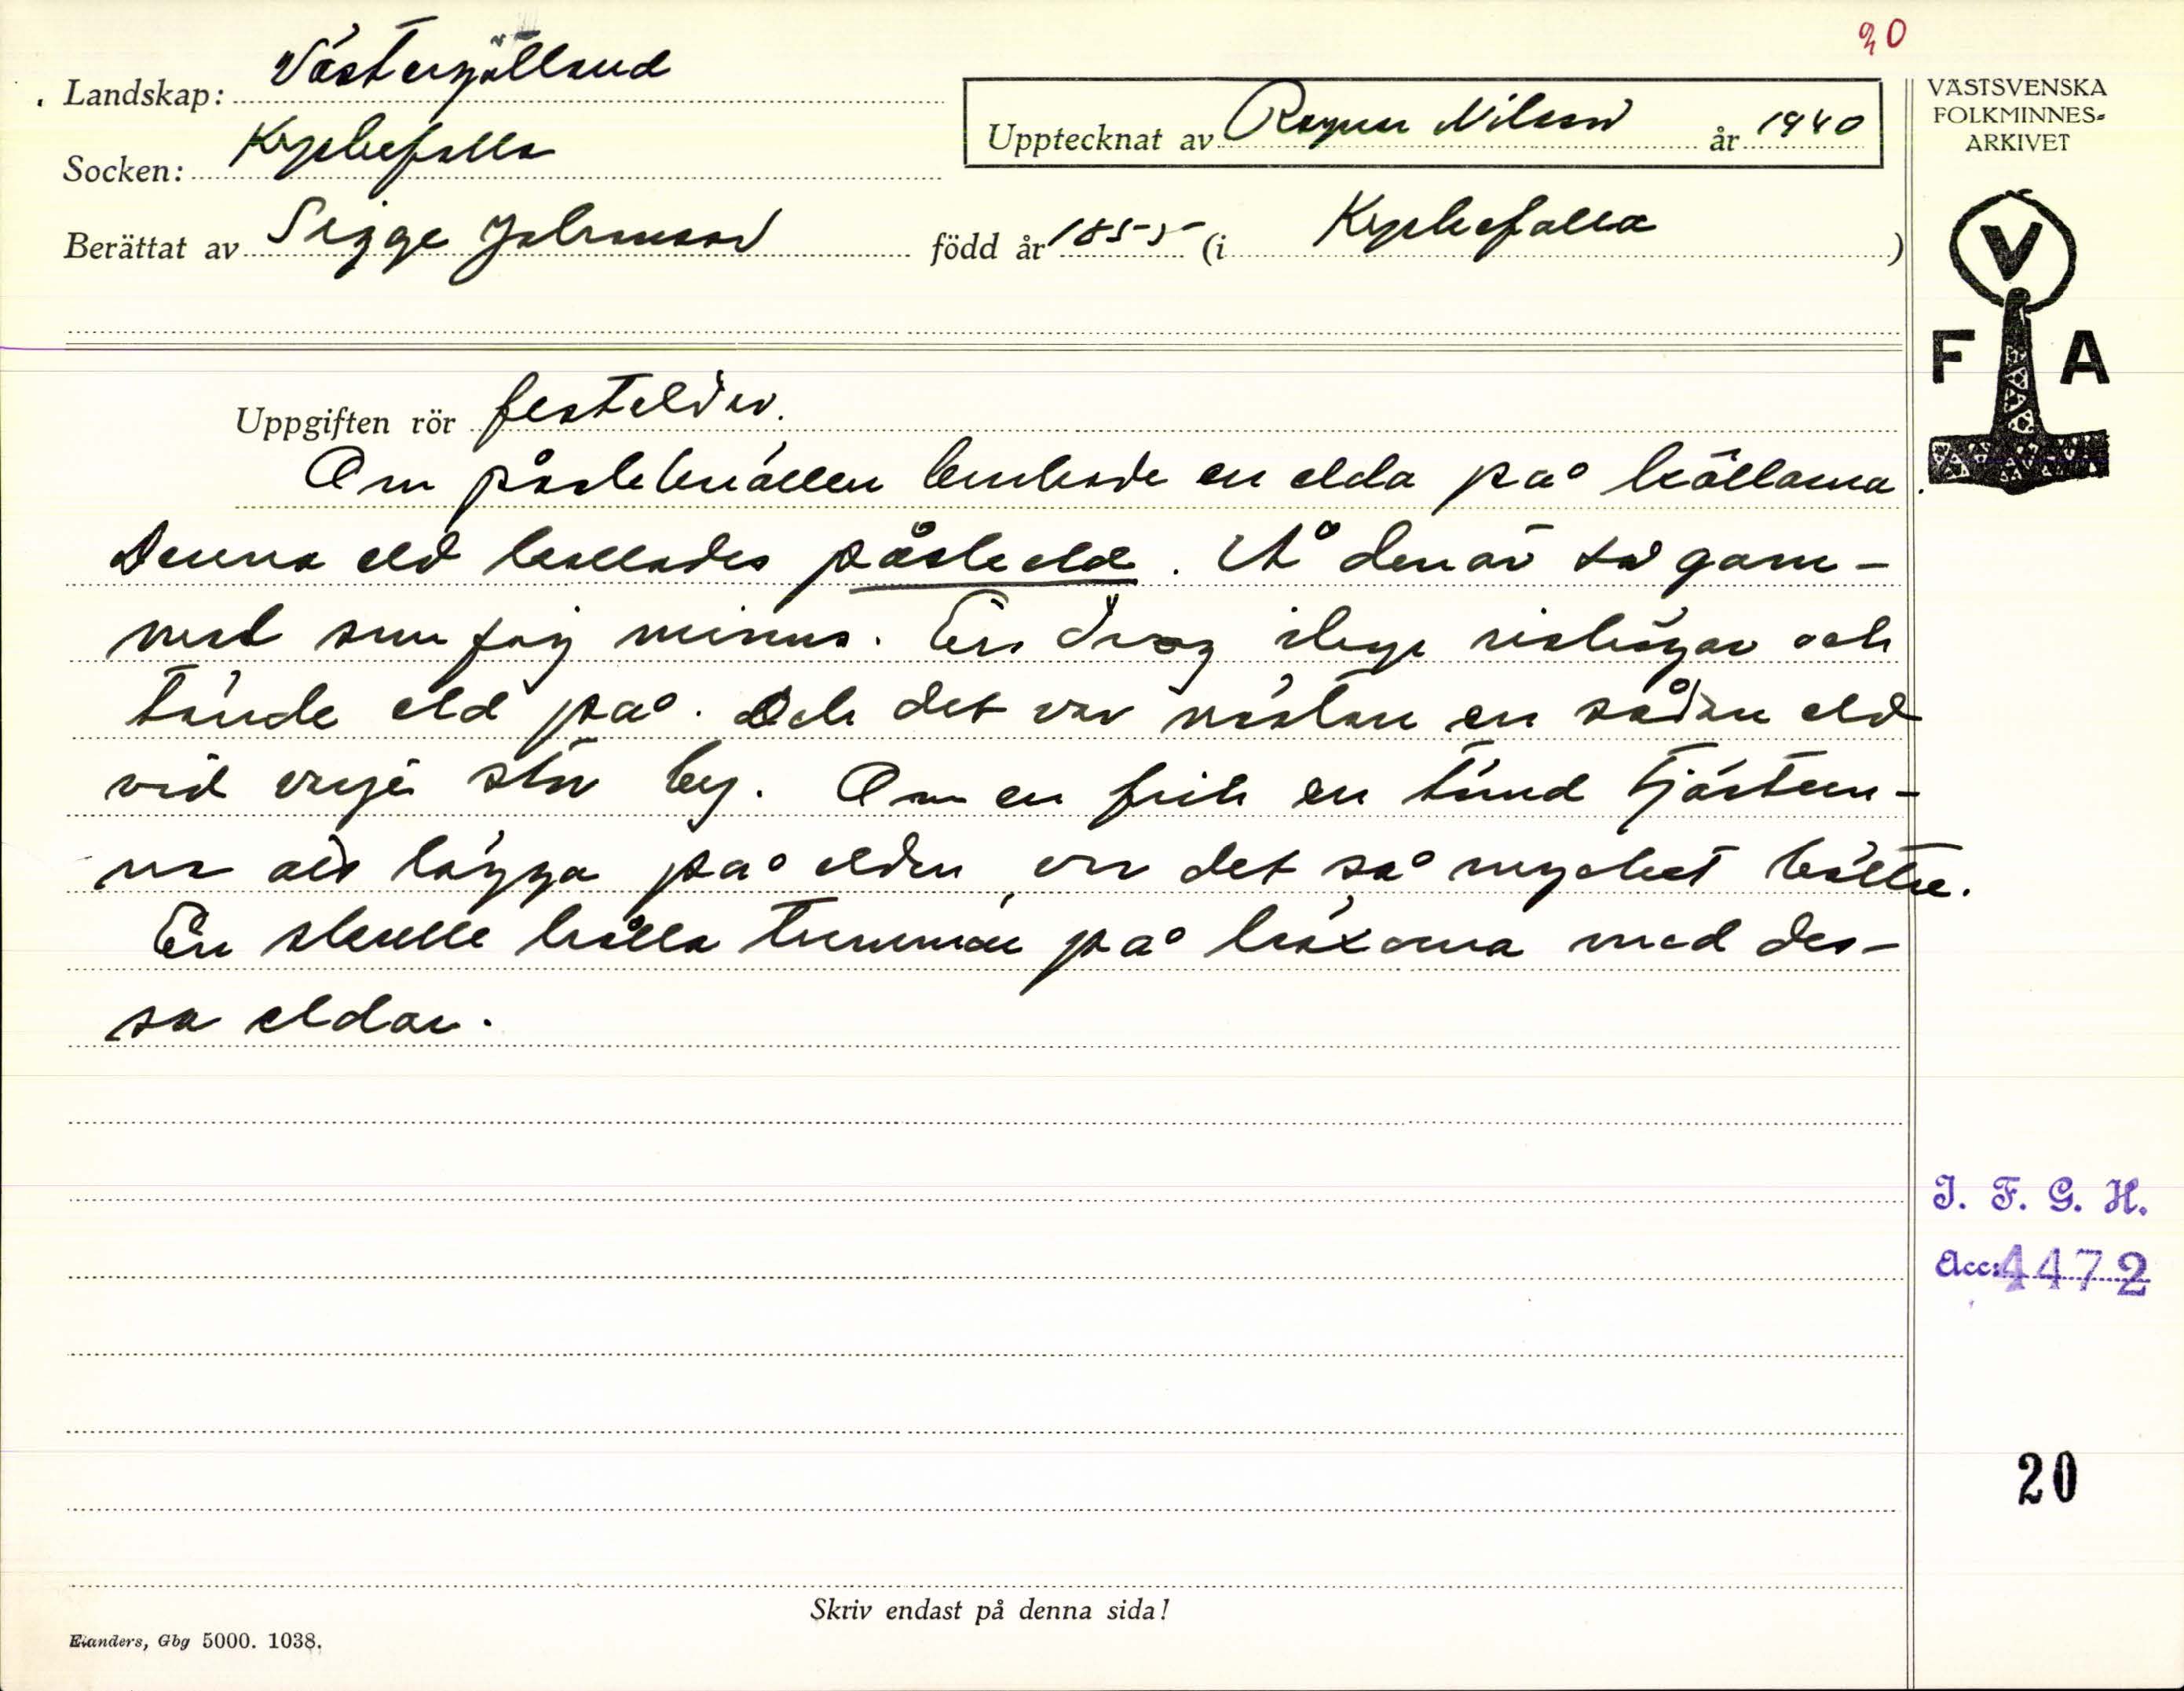 20
Landskap: Västergötland
Socken: Kyrkefalla
Upptecknat av Ragnar Nilsson år 1940
Berättat av Sigge Johansson född år 1855 (i Kyrkefalla)
VÄSTSVENSKA
FOLKMINNES-
ARKIVET
V
F A
Uppgiften rör festeldar.
Om påskkvällen brukade en elda på kullarna.
Denna eld kallades påskeld. Å den är så gam-
mal som jag minns. En drog ihop rishögar och
tände eld på. Och det var nästan en sådan eld
vid varje stor by. Om en fick en tånd tjärtun-
na att lägga på elden, var det så mycket bättre.
En skulle hålla tummen på häxorna med des-
sa eldar.
I. F. G. H.
Acc: 4472
20
Skriv endast på denna sida!
Elanders, Gbg 5000. 1038.